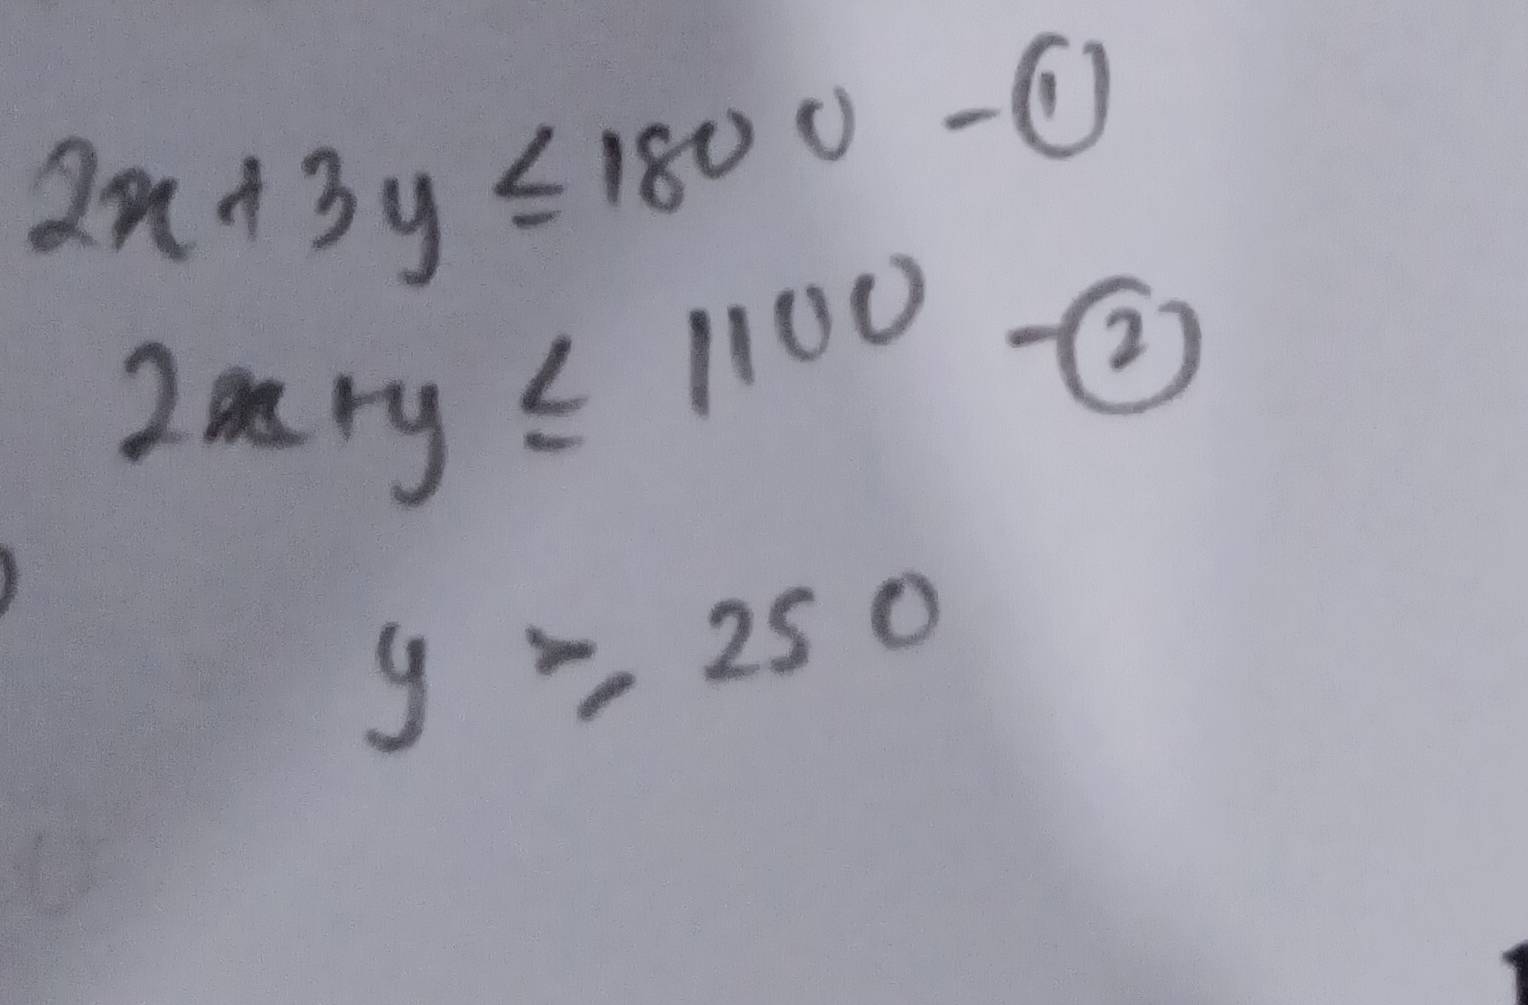 2x + 3y ≤ 1800 - ①
2x + y ≤ 1100 - ②
y ≥ 250